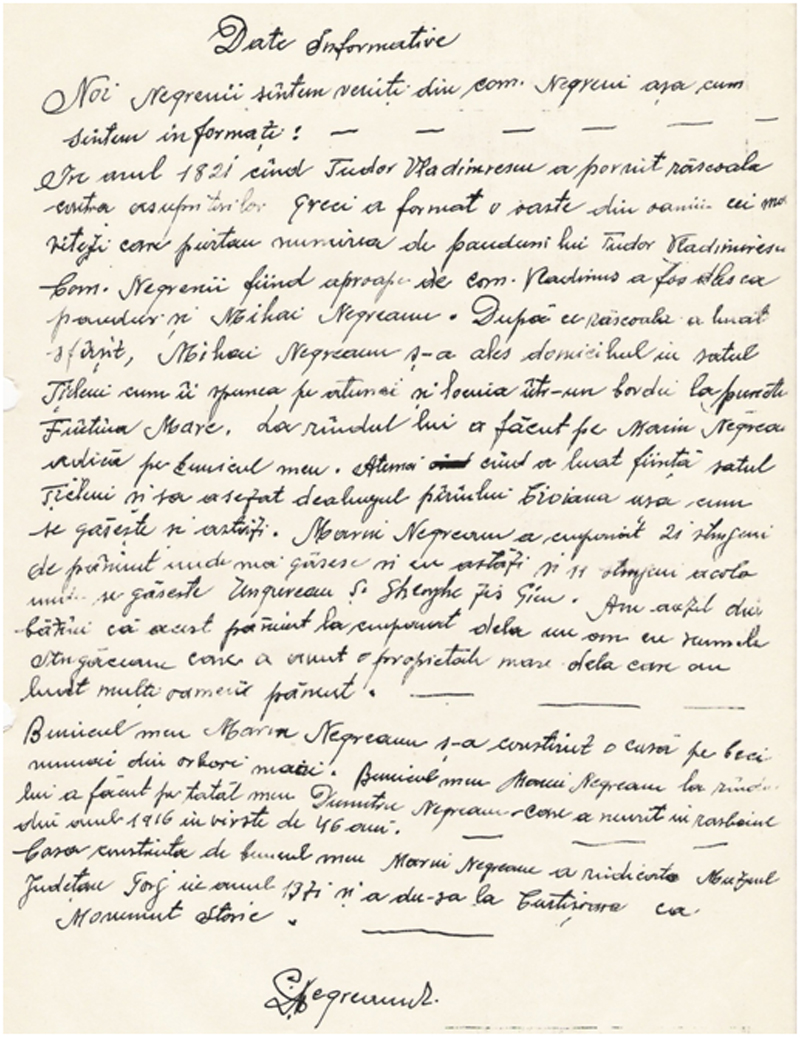 Date Informative
Noi Negrenii sîntem veniți din com. Negreni așa cum
sîntem informați : — — — — — —
În anul 1821 cînd Tudor Vladimirescu a pornit răscoala
contra asupritorilor Greci a format o oaste din oamii cei mai
viteji care purtau numirea de panduri lui Tudor Vladimirescu
Com. Negrenii fiind aproape de com. Vladimir a fos ales ca
pandur și Mihai Negreanu. După ce răscoala a luat
sfîrșit, Mihai Negreanu ș-a ales domiciliul in satul
Țicleni cum îi spunea pe atunci și locuia într-un bordei la puncte
Fîntîna Mare. La rîndul lui a făcut pe Marin Negrea
adică pe bunicul meu. Atunci cînd a luat ființă satul
Țicleni si sa asezat dealungul pîrîului Cioiana așa cum
se găsește si astăzi. Marin Negreanu a cumparat 21 stinjeni
de pămînt unde mai găsesc si eu astăzi si 11 stinjeni acolo
unde se găseste Ungureanu Gheorghe zis Gicu. Am auzit din
bătrîni că acest pămînt la cumparat dela un om cu numele
Strugăceanu care a avut o proprietate mare dela care au
luat mulți oameni pămînt. — — —
Bunicul meu Marin Negreanu ș-a construit o casă pe beci
numai din arbori mari. Bunicul meu Marin Negreanu la rîndu
lui a făcut pe tatăl meu Dumitru Negreanu care a murit in rasboiul
din anul 1916 in vîrste de 46 ani. — — —
Casa construita de bunicul meu Marin Negreanu a ridicato Muzeul
Județean Gorj in anul 1971 și a du-sa la Curtișoara ca
Monument Storic. —